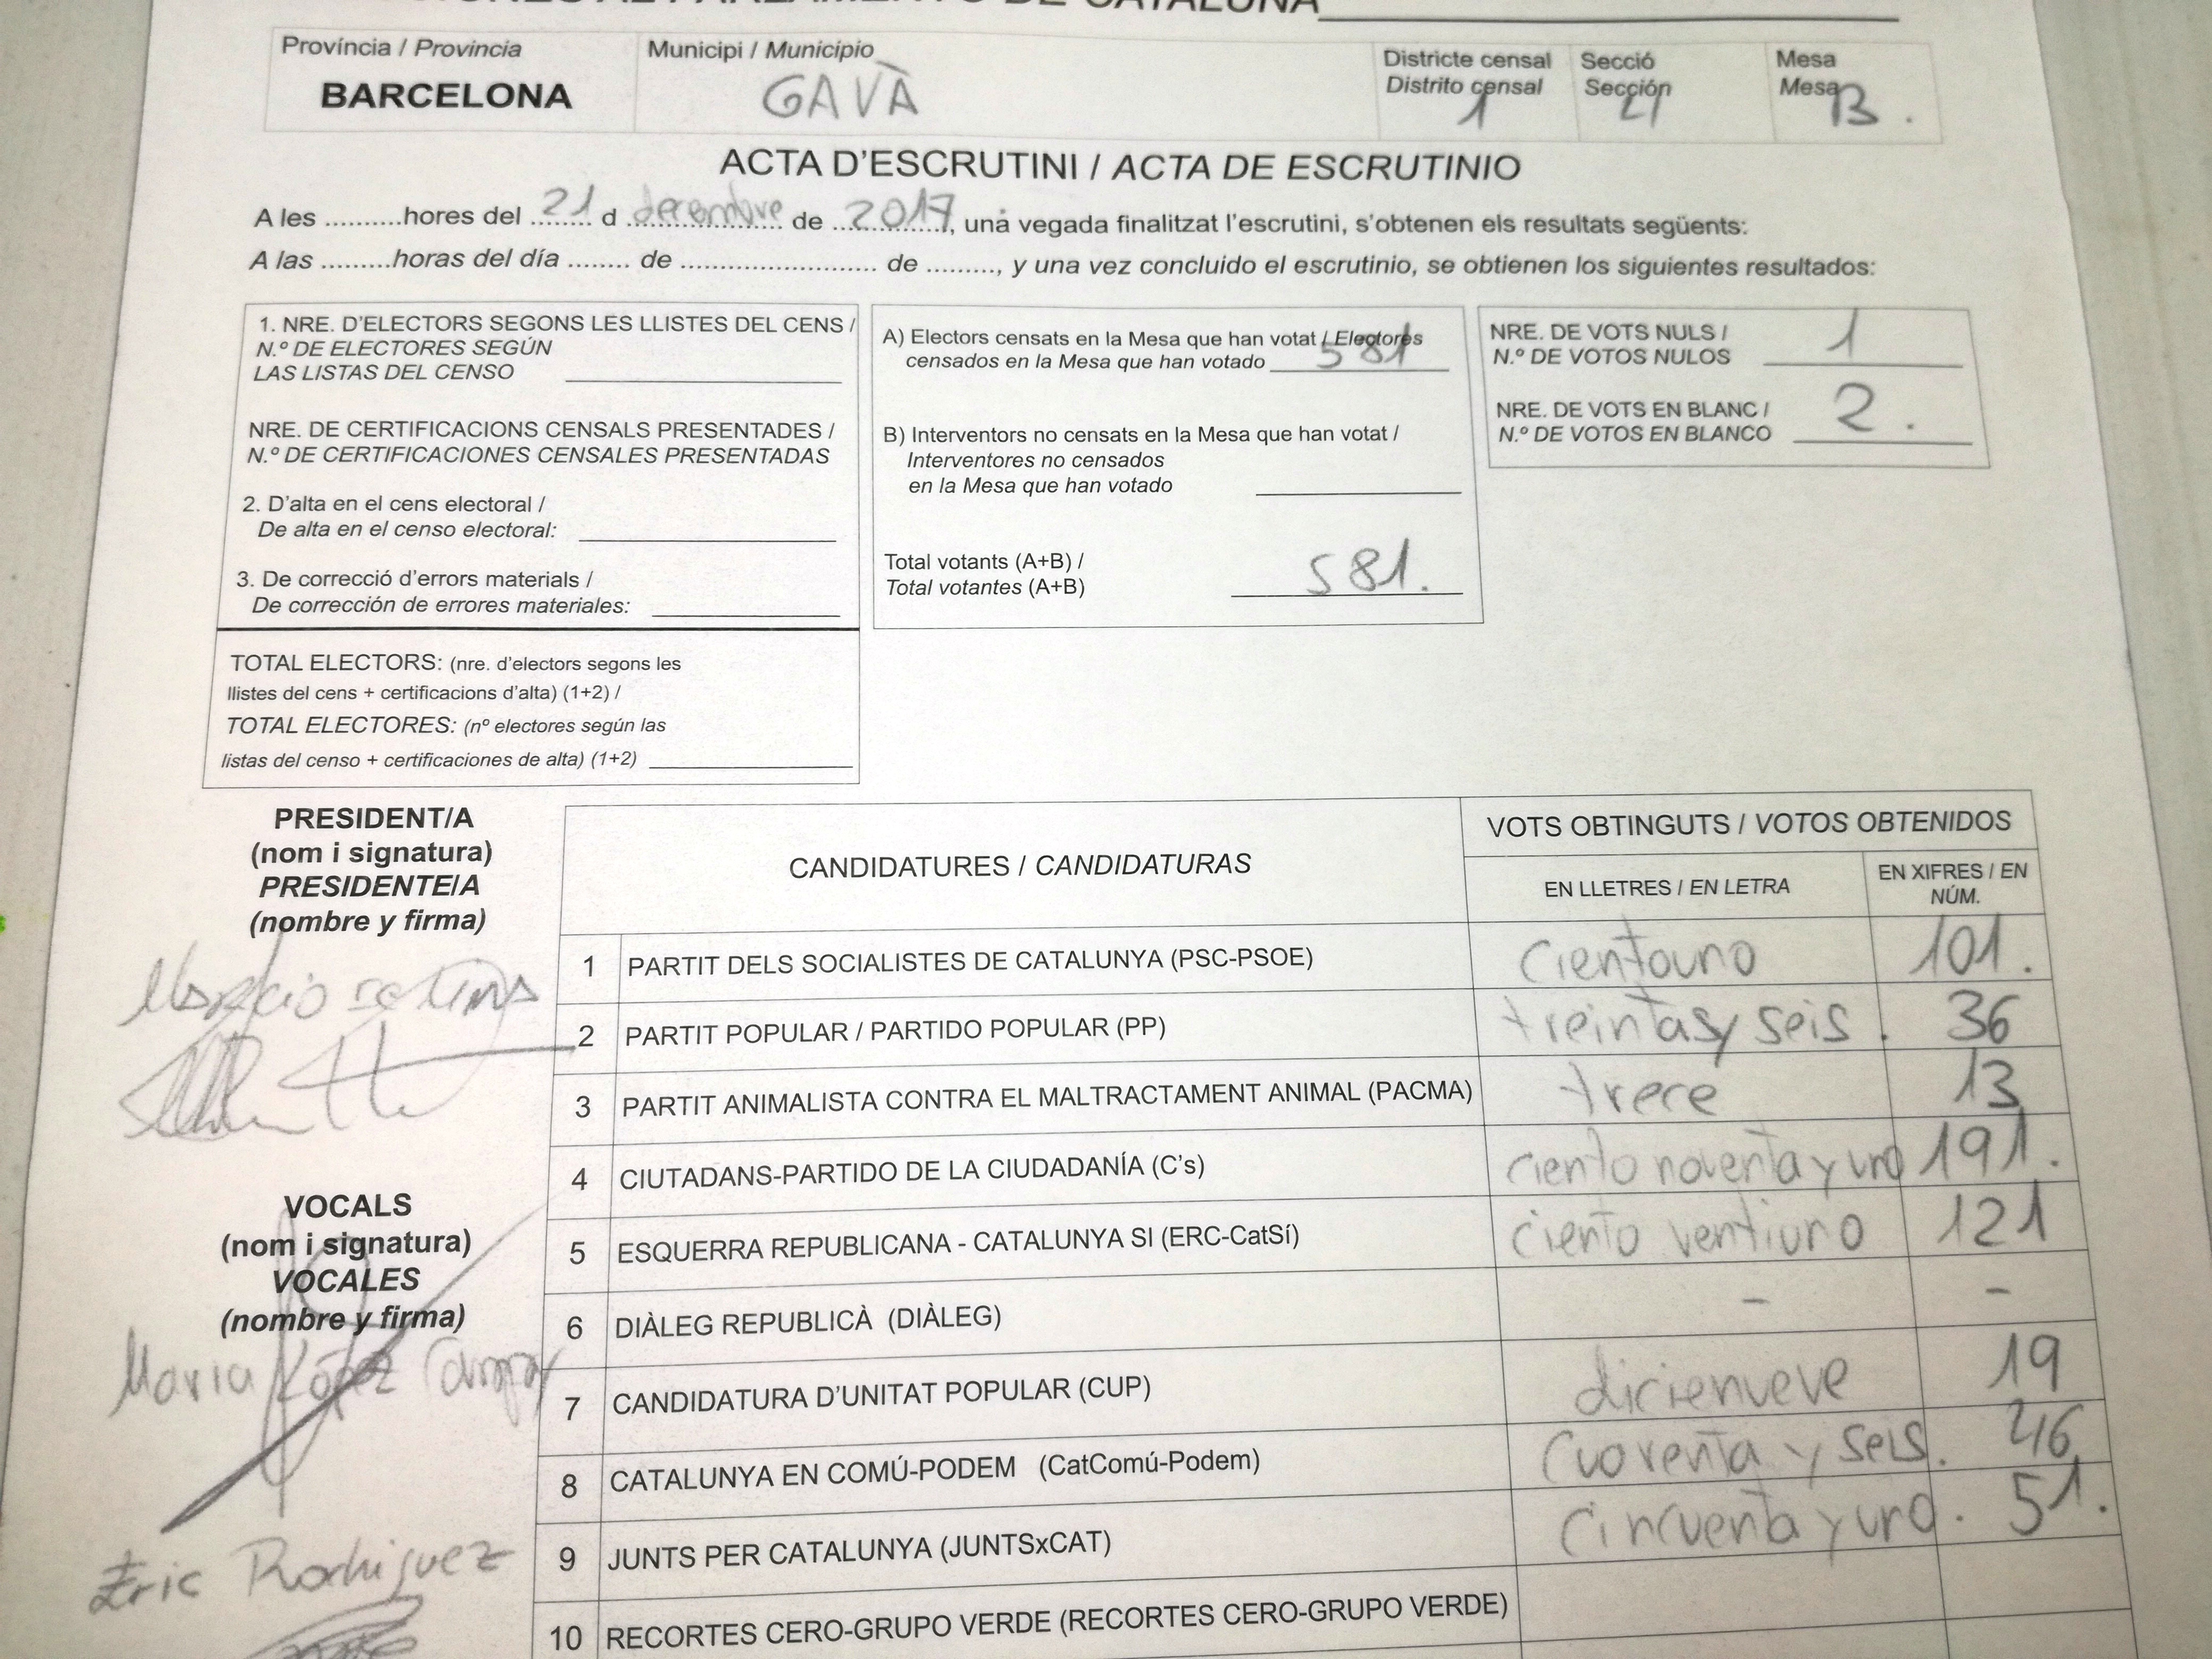 CATALUÑA
Província / Provincia
BARCELONA
Municipi / Municipio
GAVÀ
Districte censal
Distrito censal
1
Secció
Sección
4
Mesa
Mesa
B.
ACTA D'ESCRUTINI / ACTA DE ESCRUTINIO
A les ..........hores del 21 d decembre de 2017, una vegada finalitzat l'escrutini, s'obtenen els resultats següents:
A las .........horas del día ........ de ......................... de ........., y una vez concluido el escrutinio, se obtienen los siguientes resultados:
1. NRE. D'ELECTORS SEGONS LES LLISTES DEL CENS /
N.º DE ELECTORES SEGÚN
LAS LISTAS DEL CENSO
NRE. DE CERTIFICACIONS CENSALS PRESENTADES /
N.º DE CERTIFICACIONES CENSALES PRESENTADAS
2. D'alta en el cens electoral /
De alta en el censo electoral:
3. De correcció d'errors materials /
De corrección de errores materiales:
TOTAL ELECTORS: (nre. d'electors segons les
llistes del cens + certificacions d'alta) (1+2) /
TOTAL ELECTORES: (nº electores según las
listas del censo + certificaciones de alta) (1+2)
A) Electors censats en la Mesa que han votat / Electores
censados en la Mesa que han votado 581
B) Interventors no censats en la Mesa que han votat /
Interventores no censados
en la Mesa que han votado
Total votants (A+B) /
Total votantes (A+B) 581.
NRE. DE VOTS NULS /
N.º DE VOTOS NULOS 1
NRE. DE VOTS EN BLANC /
N.º DE VOTOS EN BLANCO 2.
PRESIDENT/A
(nom i signatura)
PRESIDENTE/A
(nombre y firma)
VOCALS
(nom i signatura)
VOCALES
(nombre y firma)
Maria López
Eric Rodriguez
CANDIDATURES / CANDIDATURAS
VOTS OBTINGUTS / VOTOS OBTENIDOS
EN LLETRES / EN LETRA
EN XIFRES / EN
NÚM.
1 PARTIT DELS SOCIALISTES DE CATALUNYA (PSC-PSOE) Cientouno 101.
2 PARTIT POPULAR / PARTIDO POPULAR (PP) treintasy seis. 36
3 PARTIT ANIMALISTA CONTRA EL MALTRACTAMENT ANIMAL (PACMA) trece 13
4 CIUTADANS-PARTIDO DE LA CIUDADANÍA (C's) ciento noventa y uno 191.
5 ESQUERRA REPUBLICANA - CATALUNYA SI (ERC-CatSí) ciento ventiuno 121
6 DIÀLEG REPUBLICÀ (DIÀLEG) - -
7 CANDIDATURA D'UNITAT POPULAR (CUP) dicienueve 19
8 CATALUNYA EN COMÚ-PODEM (CatComú-Podem) Cuarenta y seis. 46
9 JUNTS PER CATALUNYA (JUNTSxCAT) Cincuenta y uno. 51.
10 RECORTES CERO-GRUPO VERDE (RECORTES CERO-GRUPO VERDE)